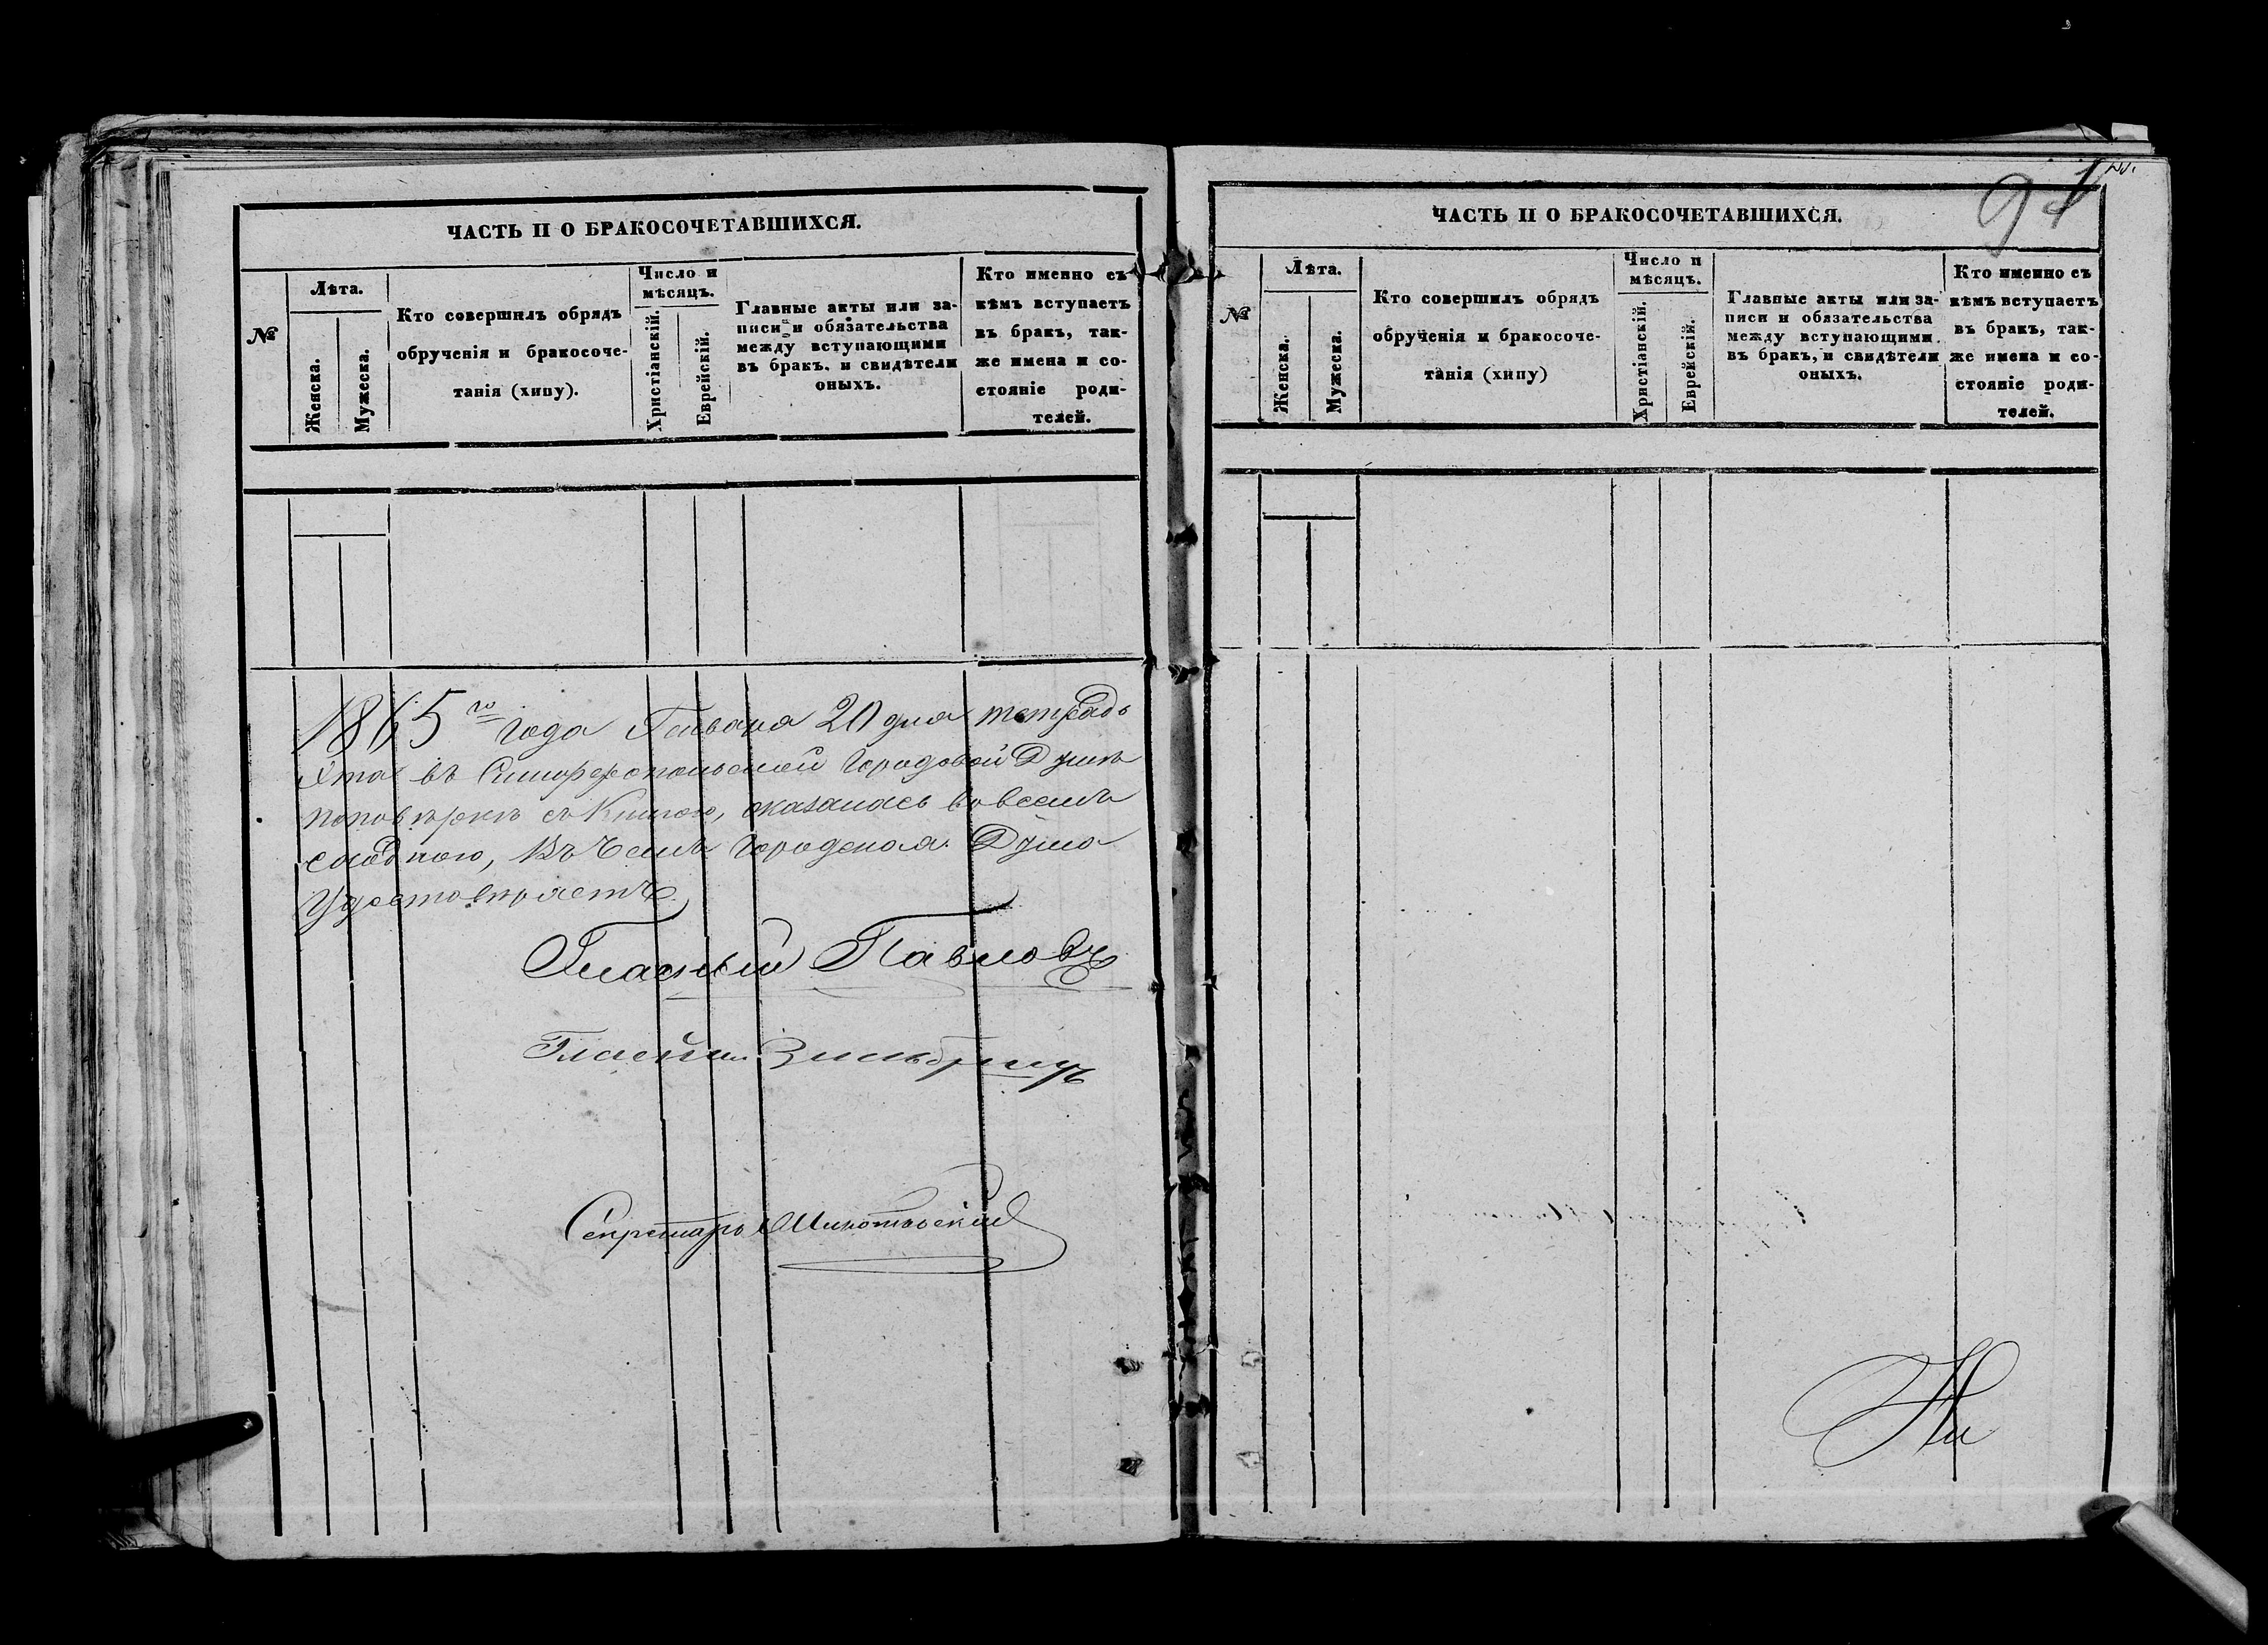 ЧАСТЬ II О БРАКОСОЧЕТАВШИХСЯ.
№
Лѣта.
Женска.
Мужеска.
Кто совершилъ обрядъ
обрученія и бракосоче-
танія (хипу).
Число и
мѣсяцъ.
Христіанскій.
Еврейскій.
Главные акты или за-
писи и обязательства
между вступающими
въ бракъ. и свидѣтели
оныхъ.
Кто именно съ
кѣмъ вступаетъ
въ бракъ, так-
же имена и со-
стояніе роди-
телей.
1865го года Генваря 20 дня тетрадь
Эта въ Симферопольской Городовой Думѣ
поповѣркѣ съ Книгою, оказалась вовсемъ
сходною, Въ чемъ Городская Дума
Удостовѣряетъ.
Гласный Павловъ
Гласный
Секретарь
ЧАСТЬ II О БРАКОСОЧЕТАВШИХСЯ.
№
Лѣта.
Женска.
Мужеска.
Кто совершилъ обрядъ
обрученія и бракосоче-
танія (хипу)
Число и
мѣсяцъ.
Христіанскій.
Еврейскій.
Главные акты или за-
писи и обязательства
между вступающими.
въ бракъ, и свидѣтели
оныхъ.
Кто именно съ
кѣмъ вступаетъ
въ бракъ, так-
же имена и со-
стояніе роди-
телей.